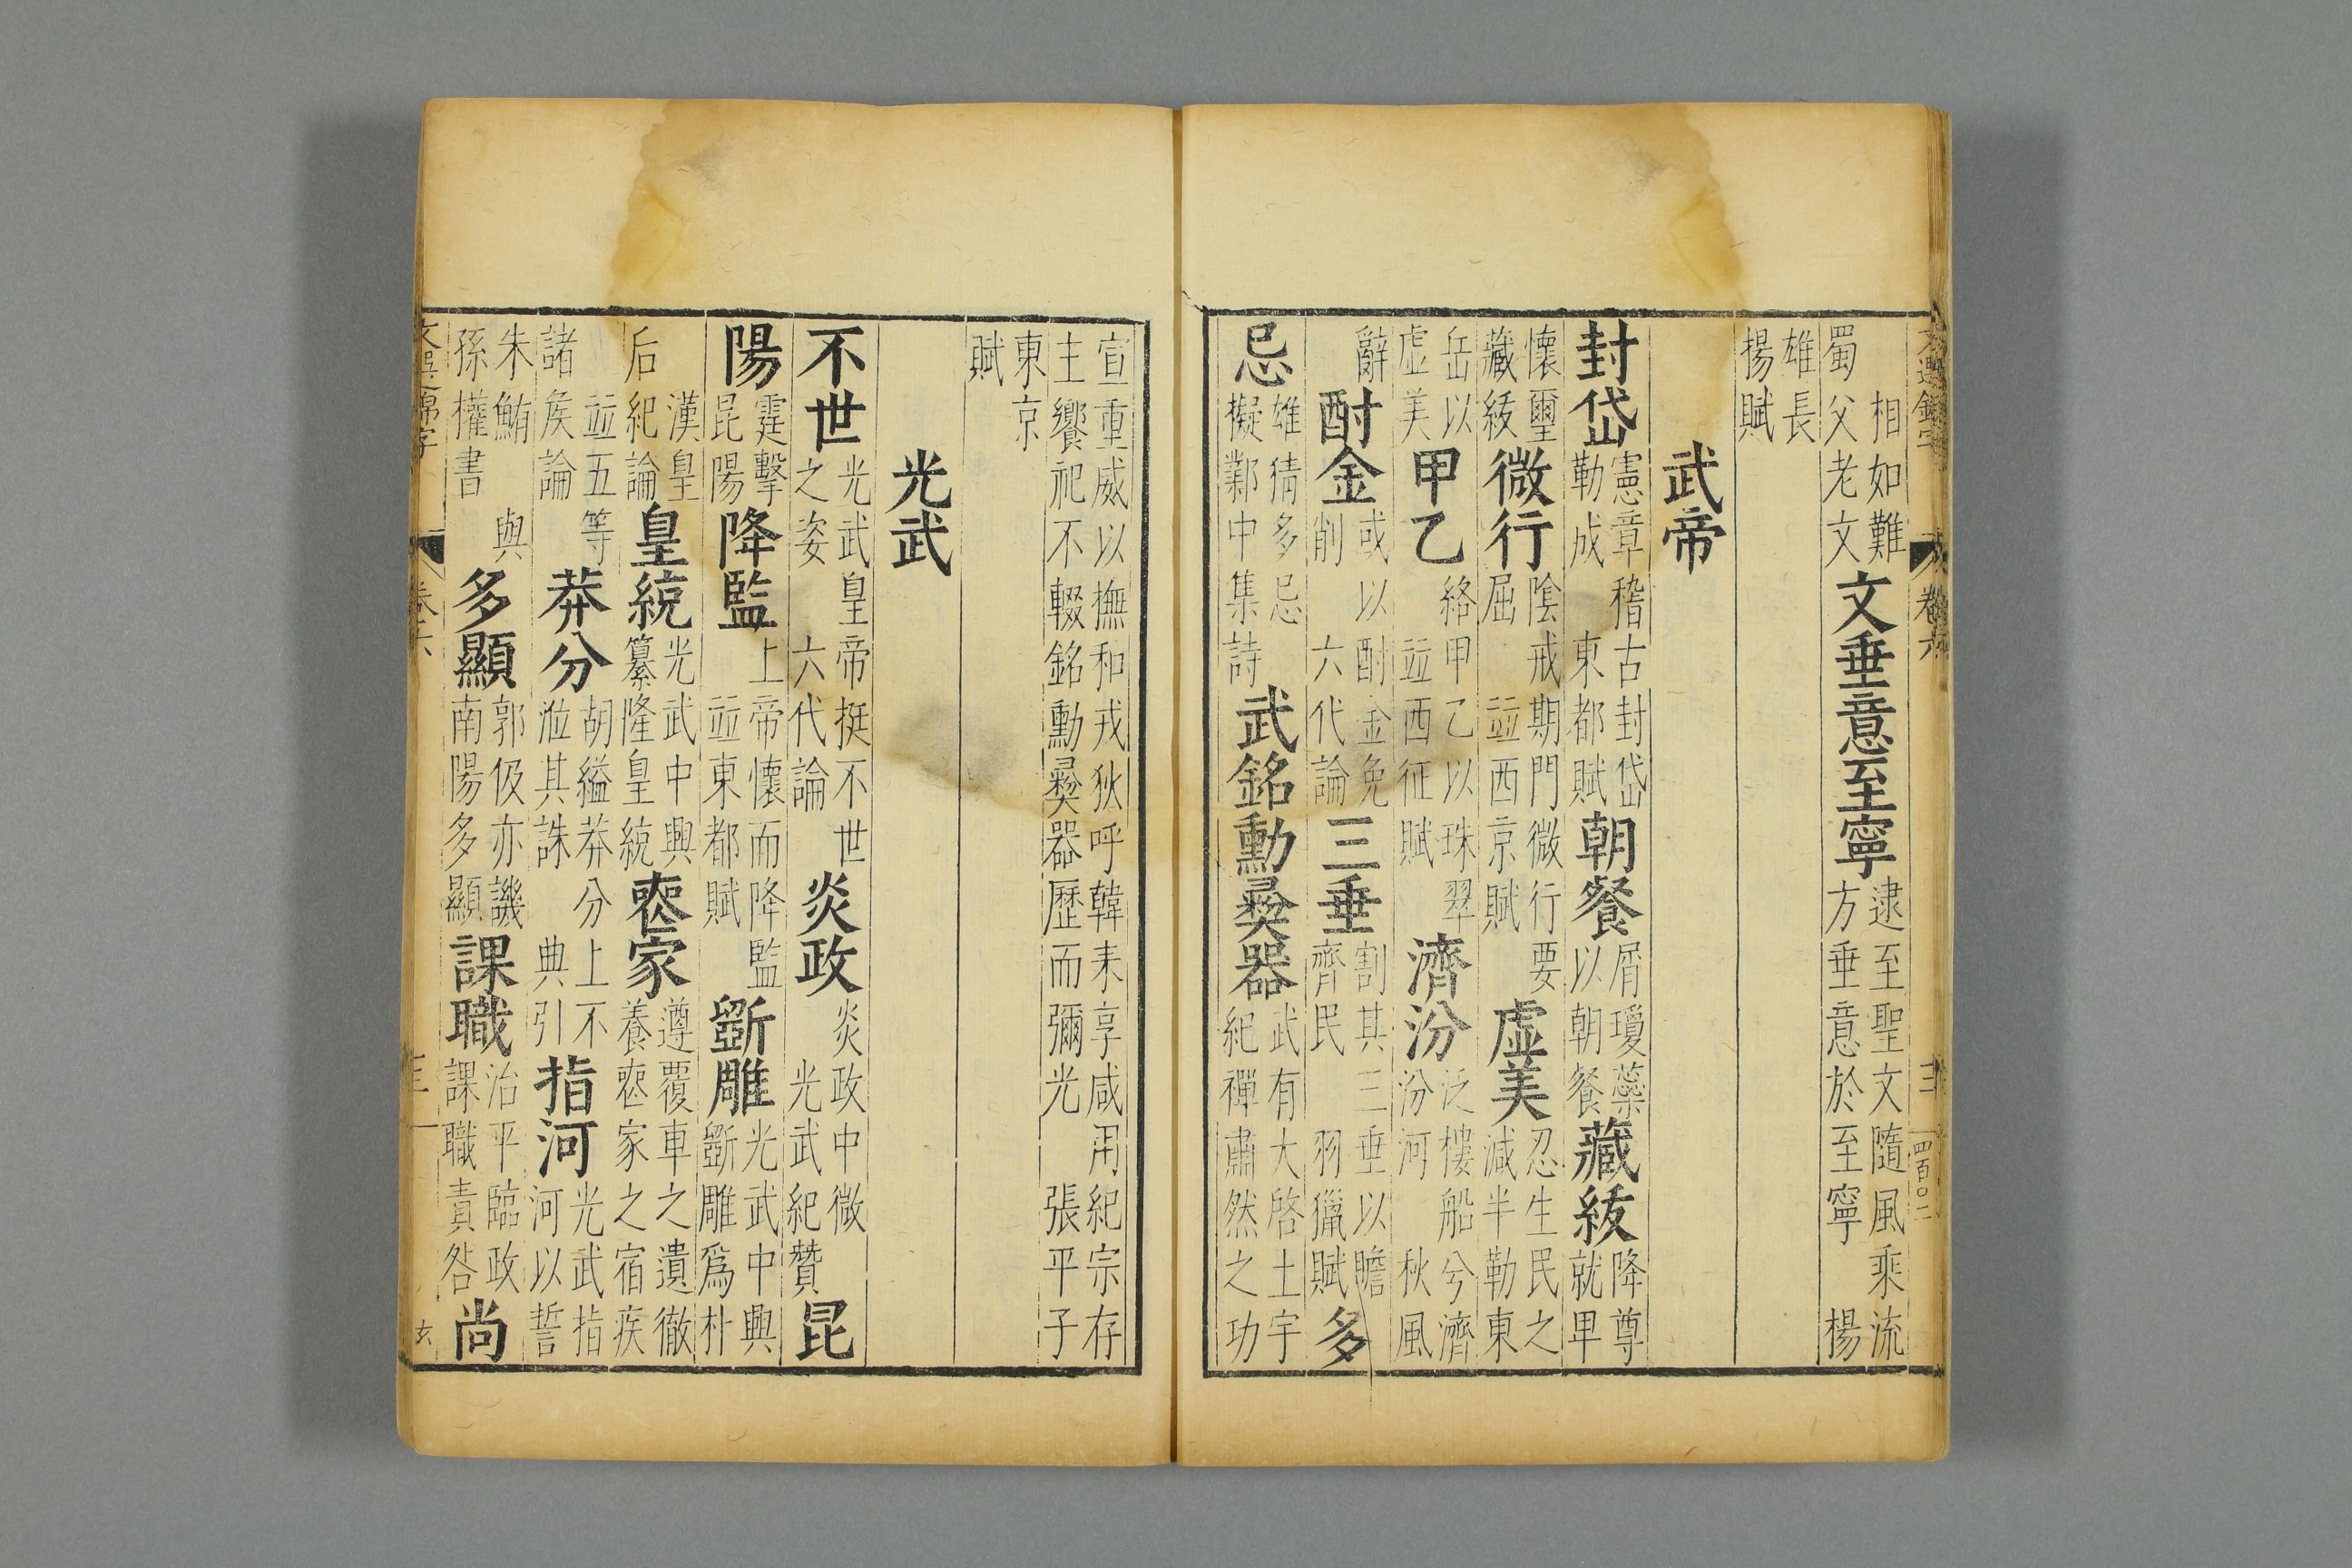 文選錦字 卷六 四百〇二
相如難蜀父老文 文垂意至寧 逮至聖文隨風乘流方垂意於至寧 楊
雄長楊賦
武帝
封岱 憲章稽古封岱勒成 東都賦 朝餐 屑瓊蘂以朝餐 藏紱 降尊就甲
懷璽藏紱 微行 陰戒期門微行要屈 並西京賦 虛美 忍生民之減半勒東
岳以虛美 甲乙 絡甲乙以珠翠 並西征賦 濟汾 泛樓船兮濟汾河 秋風
辭 酎金 或以酎金免削 六代論 三垂 割其三垂以贍齊民 羽獵賦 多
忌 雄猜多忌 擬鄴中集詩 武銘勳彛器 武有大啓土宇紀禪肅然之功
宣重威以撫和戎狄呼韓來享咸用紀宗存
主饗祀不輟銘勳彛器歷而彌光 張平子
東京賦
光武
不世 光武皇帝挺不世之姿 六代論 炎政 炎政中微 光武紀贊 昆
陽 霆擊昆陽 降監 上帝懷而降監 並東都賦 斲雕 光武中興斲雕爲朴
漢皇后紀論 皇統 光武中興纂隆皇統 喪家 遵覆車之遺轍養喪家之宿疾
並五等諸矦論 莽分 胡縊莽分上不涖其誅 典引 指河 光武指河以誓
朱鮪 與孫權書 多顯 郭伋亦譏南陽多顯 課職 治平臨政課職責咎 尚
文選錦字 卷六